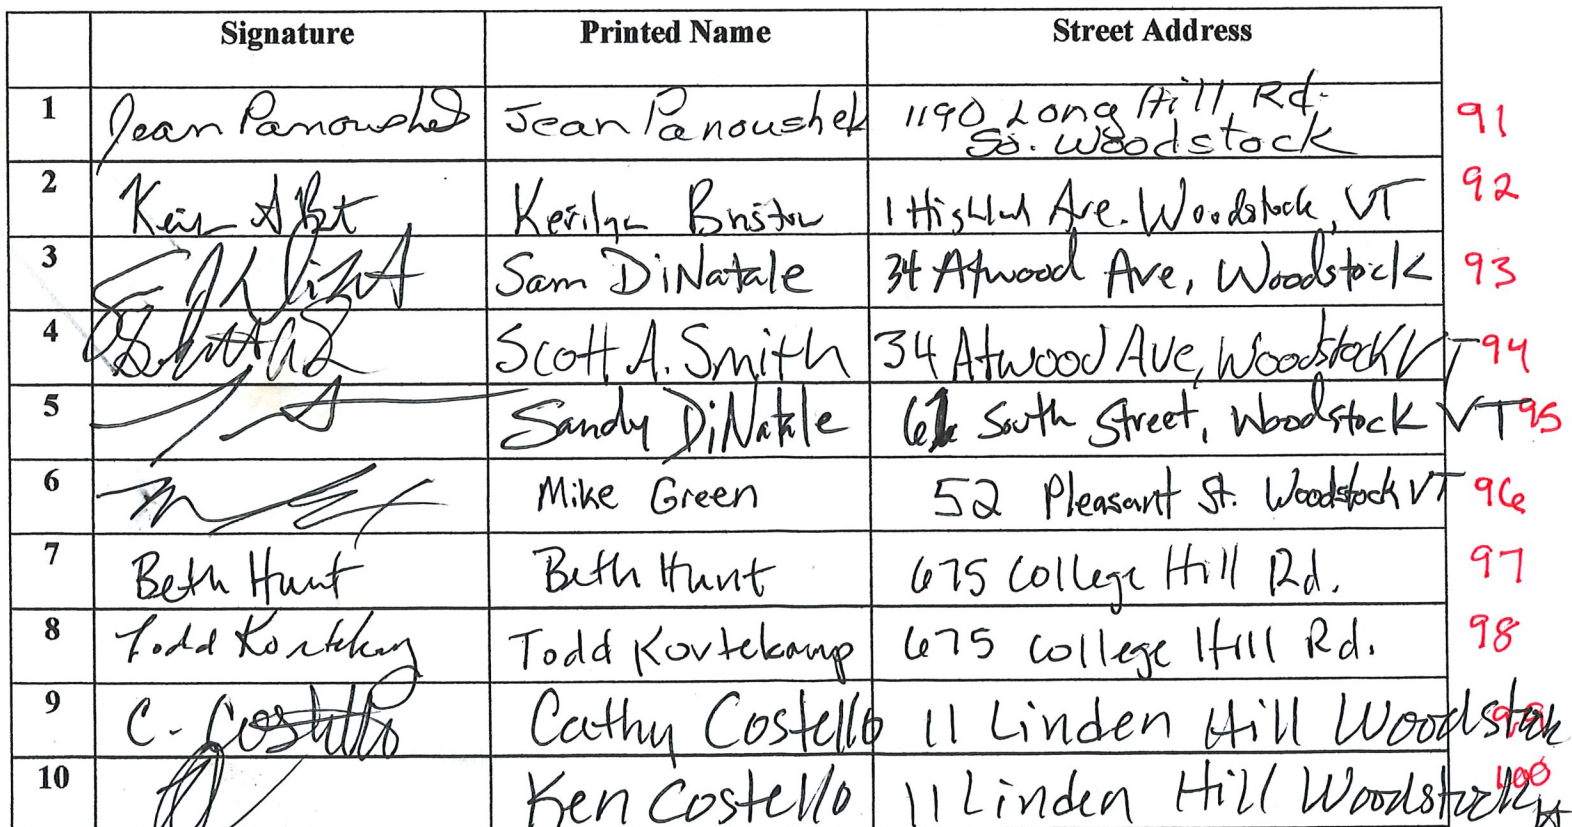 Signature Printed Name Street Address
1 Jean Panoushek Jean Panoushek 1190 Long Hill Rd. 91
So. Woodstock
2 Kerilyn Bristow 1 Highland Ave. Woodstock, VT 92
3 Sam DiNatale 34 Atwood Ave, Woodstock 93
4 Scott A. Smith 34 Atwood Ave, Woodstock VT 94
5 Sandy DiNatale South Street, Woodstock VT 95
6 Mike Green 52 Pleasant St. Woodstock VT 96
7 Beth Hunt Beth Hunt 675 College Hill Rd. 97
8 Todd Kortekamp Todd Kortekamp 675 College Hill Rd. 98
9 C. Costello Cathy Costello 11 Linden Hill Woodstock 99
10 Ken Costello 11 Linden Hill Woodstock 100